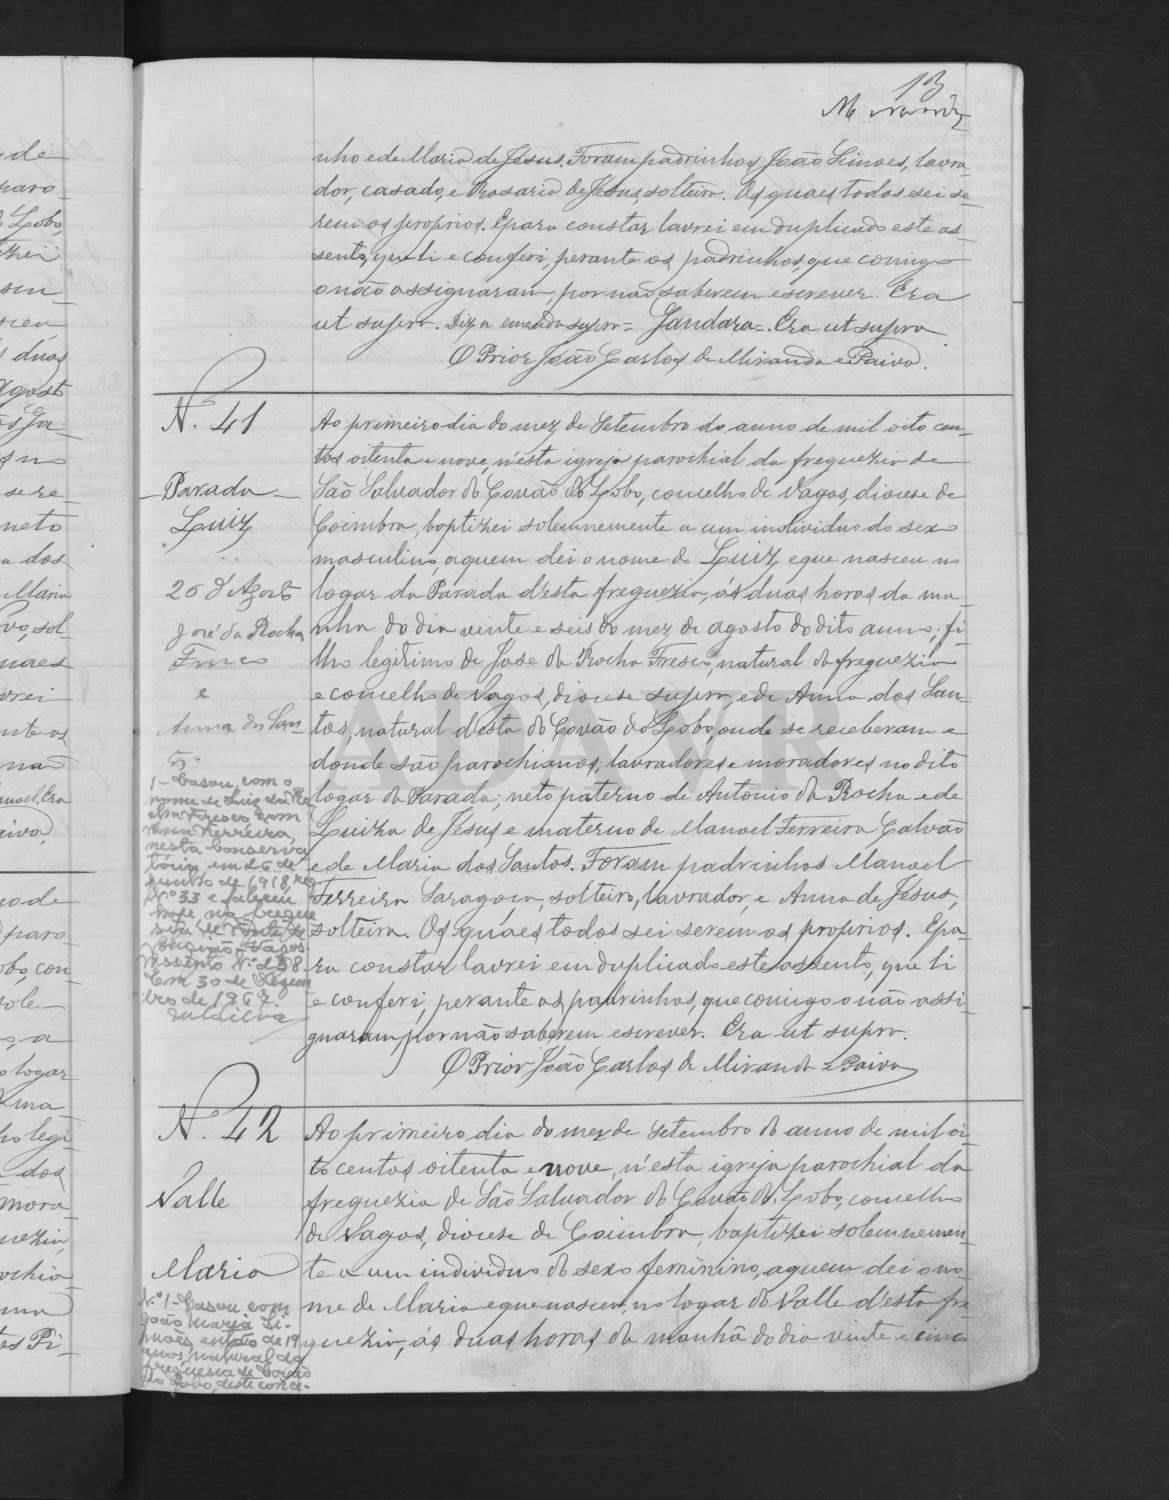 13
nho e de Maria de Jesus. Foram padrinhos João Simões, lavra-
dor, casado, e Rosaria de Jesus, solteira. Os quaes todos sei se-
rem os proprios. E para constar lavrei em duplicado este as-
sento, que li e conferi, perante os padrinhos, que comigo
o não assignaram, por não saberem escrever. Era
ut supra. Diz a emenda supra = Gandara =. Era ut supra
O Prior João Carlos de Miranda e Paiva.
N. 41
Parada
Luiz
26 d'Agosto
José da Rocha
Fresco
e
Anna dos San-
tos
1 - Casou, com o
nome de Luiz da Ro-
cha Fresco, com
Ferreira,
nesta Conserva
tória, em 26 de
de 1918, reg
Nº 33 e faleceu
hoje, na fregue
sia de Ponte de
Vagos.
Assento Nº 258.
Em 30 de Dezem
bro de 1967.
Ao primeiro dia do mez de Setembro do anno de mil oito cen-
tos oitenta e nove, n'esta igreja parochial da freguezia de
São Salvador do Covão do Lobo, concelho de Vagos, diocese de
Coimbra, baptizei solemnemente a um individuo do sexo
masculino, a quem dei o nome de Luiz, e que nasceu no
logar da Parada d'esta freguezia, ás duas horas da ma-
nha do dia vinte e seis do mez de agosto do dito anno, fi-
lho legitimo de José da Rocha Fresco, natural da freguezia
e concelho de Vagos, diocese supra, e de Anna dos San-
tos, natural d'esta do Covão do Lobo, onde se receberam e
donde são parochianos, lavradores e moradores no dito
logar da Parada; neto paterno de Antonio da Rocha e de
Luiza de Jesus, e materno de Manoel Ferreira Galvão
e de Maria dos Santos. Foram padrinhos Manoel
Ferreira Saragoça, solteiro, lavrador, e Anna de Jesus,
solteira. Os quaes todos sei serem os proprios. E pa-
ra constar lavrei em duplicado este assento, que li
e conferi, perante os padrinhos, que comigo o não assi-
gnaram, por não saberem escrever. Era ut supra.
O Prior João Carlos de Miranda e Paiva
N. 42
Valle
Maria
N.º 1 - Casou com
João Maria Si-
mões, então de 19
anos, natural da
freguesia de Covão
do Lobo, deste conce-
Ao primeiro dia do mez de Setembro do anno de mil oi-
to centos oitenta e nove, n'esta igreja parochial da
freguezia de São Salvador do Covão do Lobo, concelho
de Vagos, diocese de Coimbra, baptizei solemnemen-
te a um individuo do sexo feminino, a quem dei o no-
me de Maria e que nasceu, no logar do Valle d'esta fre
guezia, ás duas horas da manhã do dia vinte e cinco
de
paro-
Lobo,
duas
agosto
se re-
neto
dos
Maria
sol-
quaes
não
Manoel. Era
Paiva.
de
paro-
con-
sole-
logar
legi-
dos
mora-
ADAVR